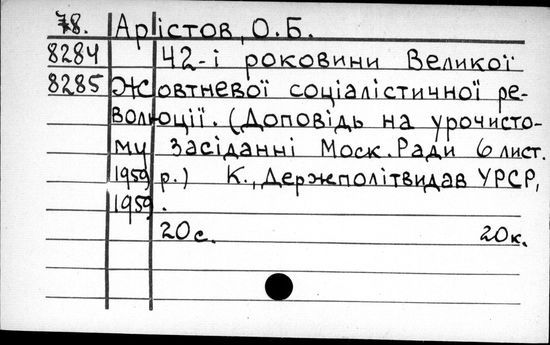 78. Арістов, О.Б.
8284 42-і роковини Великої
8285 Жовтневої соціалістичної ре-
волюції. (Доповідь на урочисто-
му засіданні Моск. Ради 6 лист.
1959 р.) К., Держполітвидав УРСР,
1959.
20с. 20к.